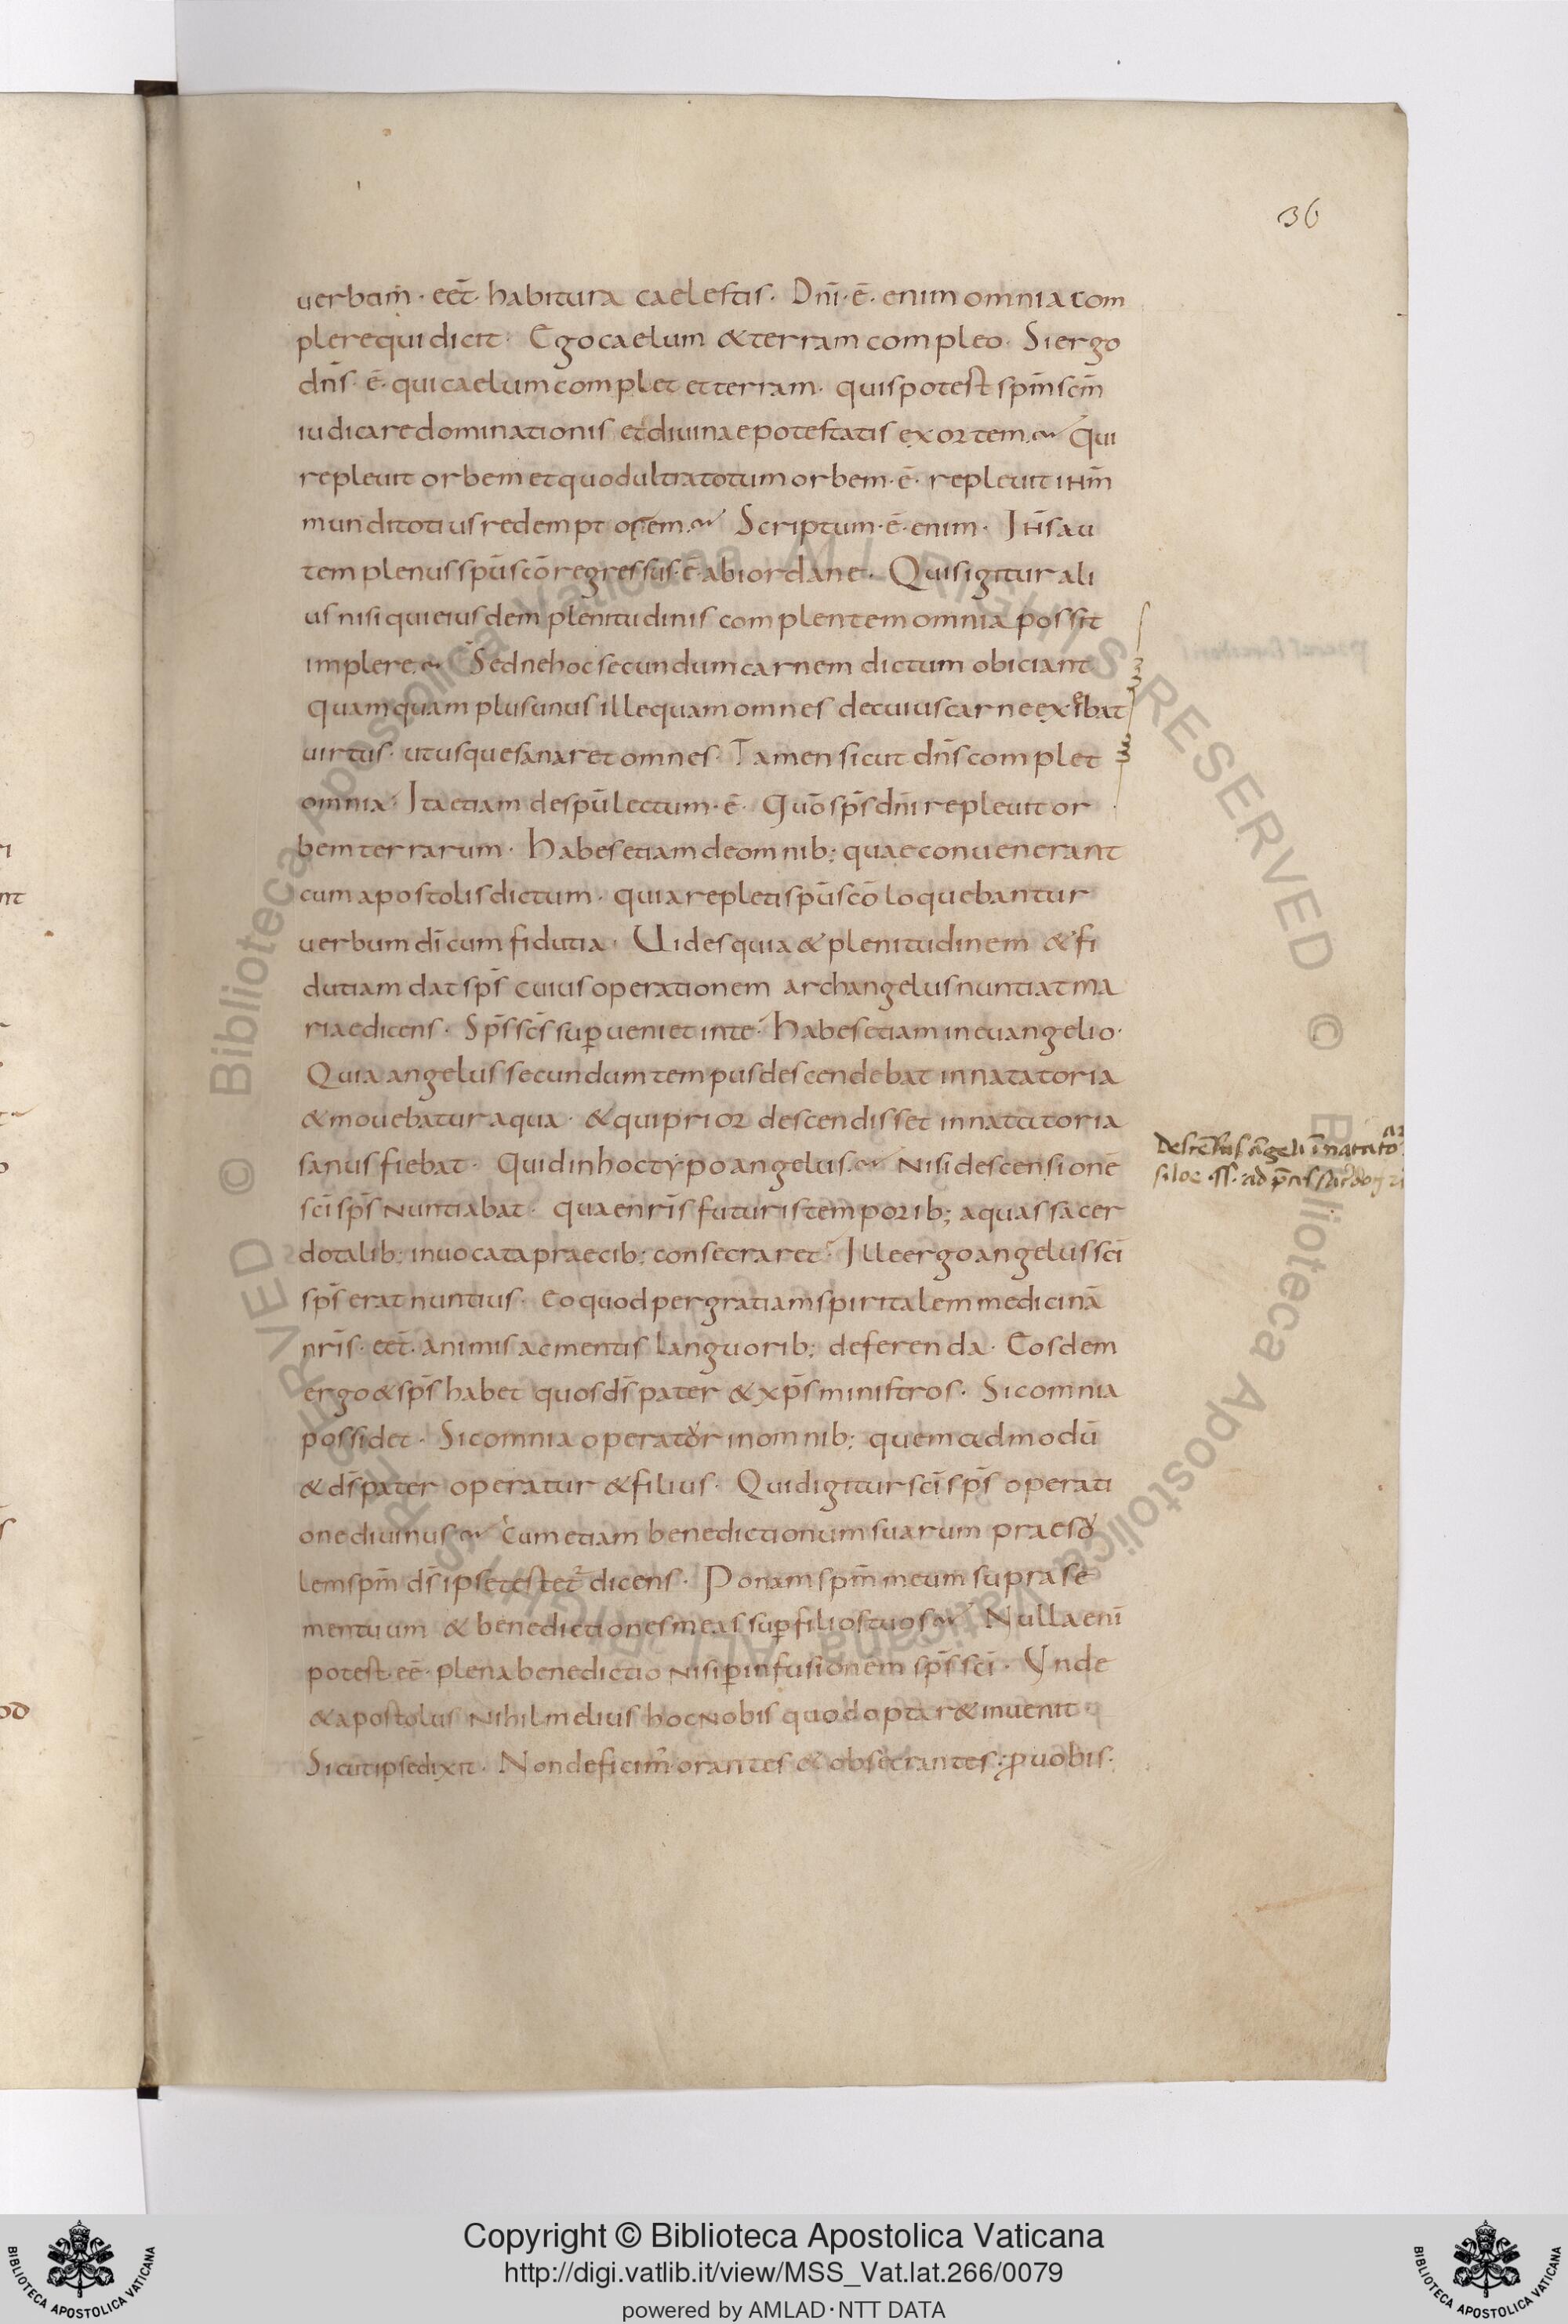 36
uerbum̄ · eēt · habitura caelestis · Dnī · ē · enim omnia com
plere qui dicit · Ego caelum & terram compleo · Si ergo
dn̄s · ē · qui caelum complet et terram · quis potest spm̄ scm̄
iudicare dominationis et diuinae potestatis exortem · Qui
repleuit orbem et quod ultra totum orbem · ē · repleuit ihm̄
mundi totius redemptorem · Scriptum · ē · enim · Ihs̄ au
tem plenus spū scō regressus · ē · ab iordane · Quis igitur ali
us nisi qui eiusdem plenitudinis complentem omnia possit
implere · Sed ne hoc secundum carnem dictum obiciant
quamquam plus unus ille quam omnes de cuius carne exiebat
uirtus · ut usque sanaret omnes · Tamen sicut dn̄s complet
omnia · Ita etiam de spū lectum · ē · quō sps̄ dnī repleuit or
bem terrarum · habes etiam de omnib; quae conuenerant
cum apostolis dictum · quia repleti spū scō loquebantur
uerbum dī cum fidutia · Uides quia & plenitudinem & fi
dutiam dat sps̄ cuius operationem archangelus nuntiat ma
riae dicens · Sps̄ scs̄ sup̄ueniet in te · habes etiam in euangelio ·
Quia angelus secundum tempus descendebat in natatoria
& mouebatur aqua · & qui prior descendisset in natatoria
sanus fiebat · quid in hoc typo angelus · nisi descensionē
scī sps̄ nuntiabat · quae nrīs futuris temporib; aquas sacer
dotalib; inuocata praecib; consecraret · Ille ergo angelus scī
sps̄ erat nuntius · eo quod per gratiam spiritalem medicinā
nrīs · eēt · animis ac mentis languorib; deferenda · Eosdem
ergo & sps̄ habet quos ds̄ pater & xps̄ ministros · Sic omnia
possidet · Sic omnia operator in omnib; quemadmodū
& ds̄ pater operatur & filius · Quid igitur scī sps̄ operati
one diuinus · cum etiam benedictionum suarum praesu
lem spm̄ ds̄ ipse testet̄ dicens · Ponam spm̄ meum supra se
men tuum & benedictiones meas sup̄ filios tuos · Nulla enī
potest eē · plena benedictio nisi p̄ infusionem sps̄ scī · Unde
& apostolus nihil melius hoc nobis quod optar& inuenit
Sicut ipse dixit · Non deficim̄ orantes & obsecrantes pro uobis ·